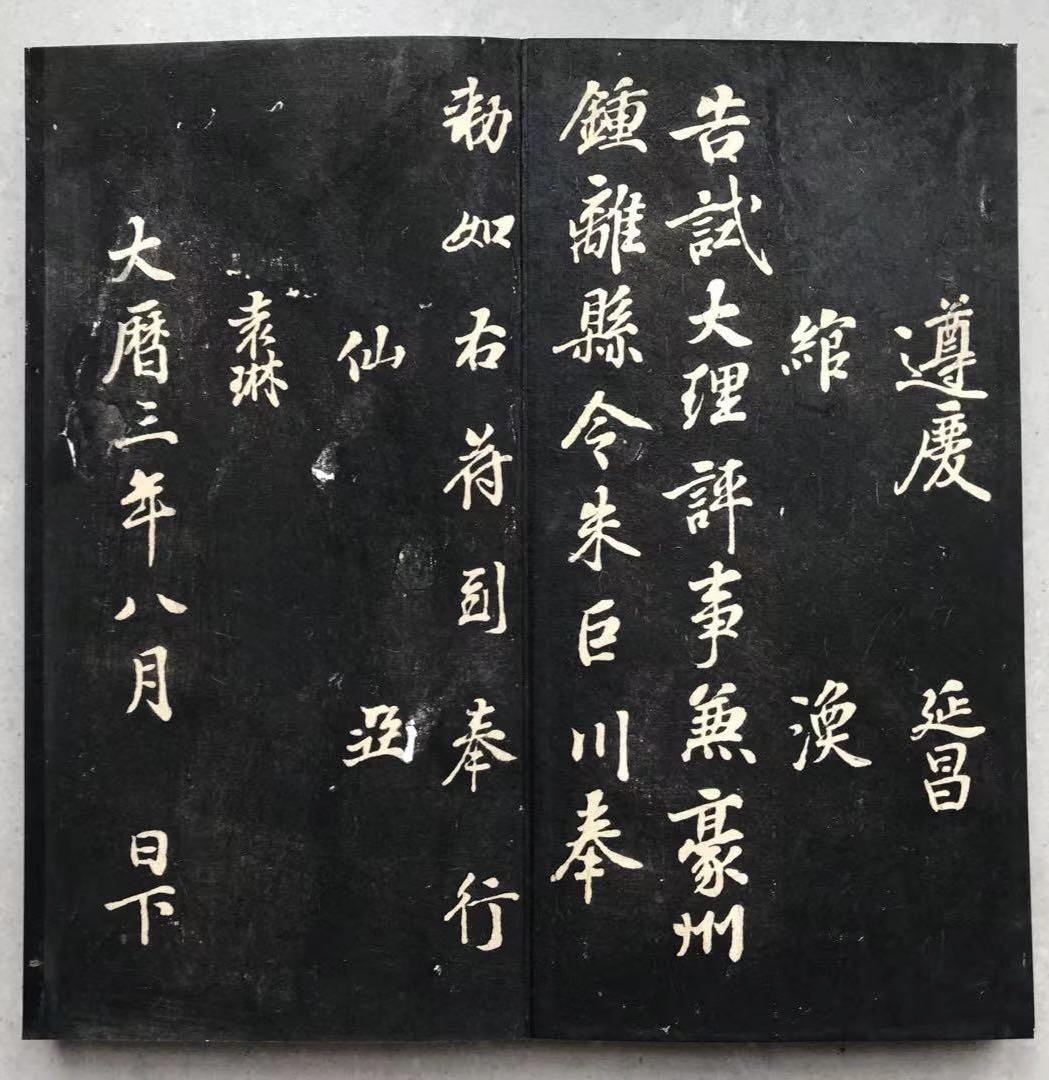 遵慶　延昌
綰　渙
告試大理評事兼豪州
鍾離縣令朱巨川奉
勑如右苻到奉行
仙
袁琳
大曆三年八月　日下